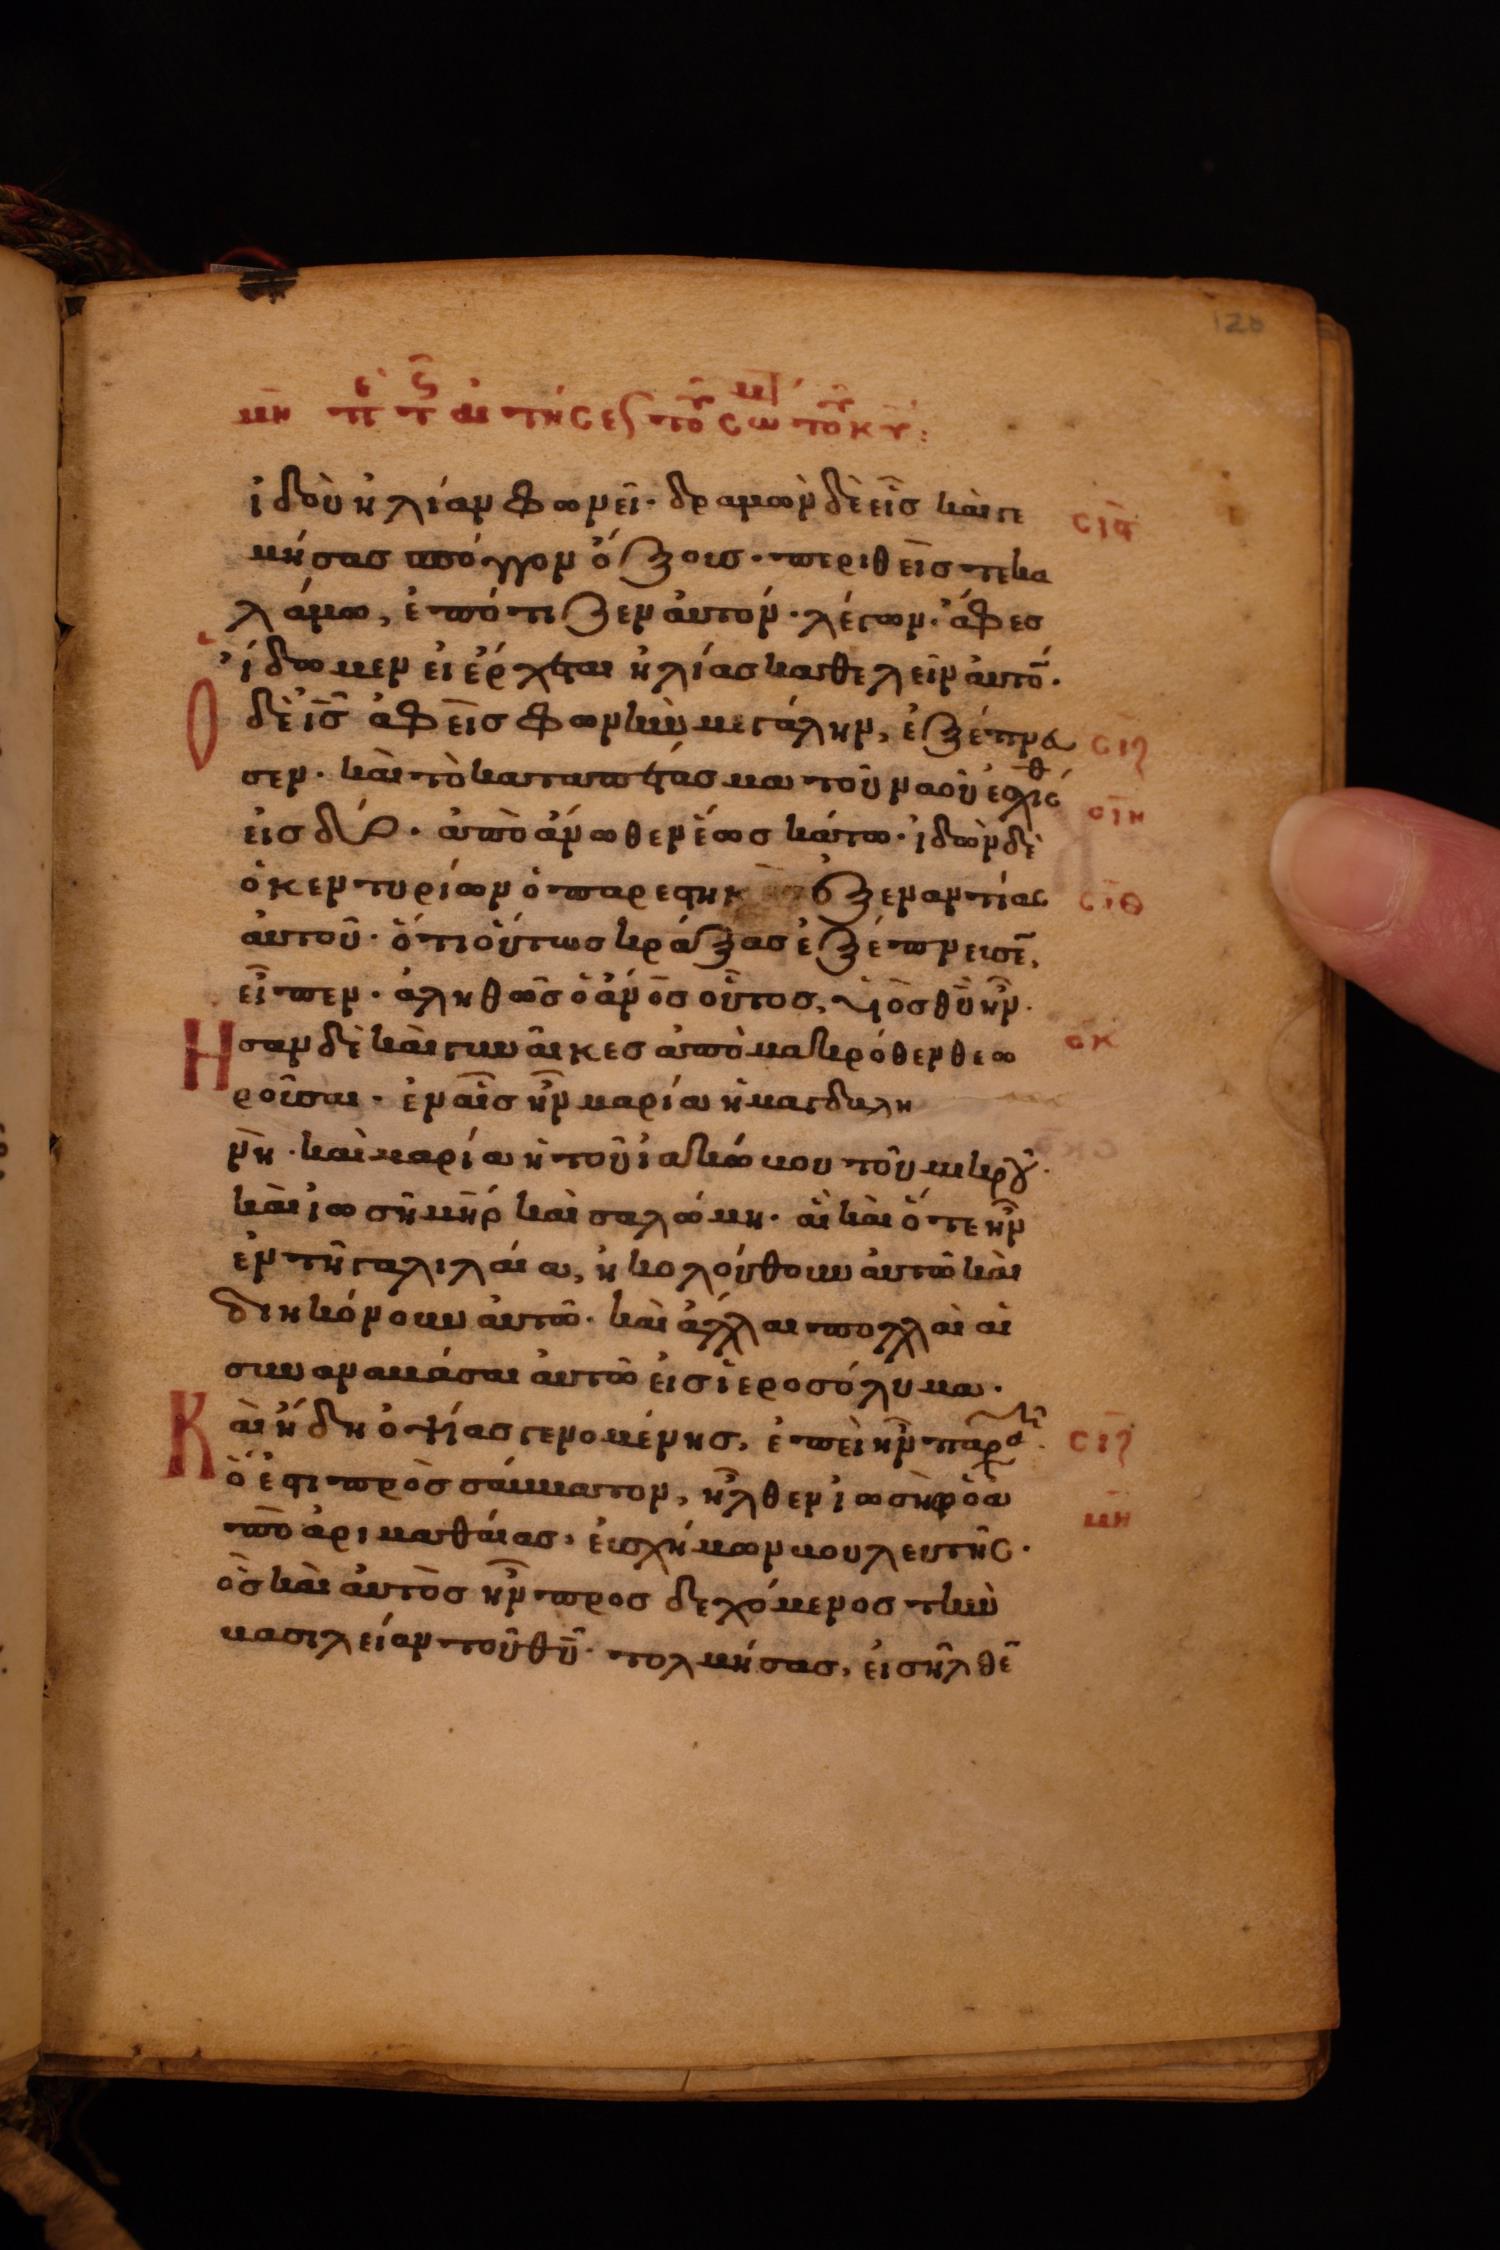 μη πε τς αι τησ εσ του σωμ του κυ:
ἰδοὺ ἠλίαν φωνεῖ· δραμὼν δὲ εἷσ καὶ γε σις
μήσας σπόγγον ὄξουσ· περιθεὶσ τε κα
λάμω, ἐπότιζεν ἀυτόν· λέγων· ἄφεσ
ἴδωμεν εἰ ἔρχεται ἠλίασ καθελεῖν ἀυτό·
Ὁ δὲ ισ ἀφεὶσ φωνὴν μεγάλην, ἐξέπνευ σιζ
σεν· καὶ τὸ καταπέτασμα τοῦ ναοῦ ἐσχίσθ σιη
εἰσ δύο· ἀπὸ ἄνωθεν ἕωσ κάτω· ἰδὼν δὲ
ὁ κεντυρίων ὁ παρεστηκ ἐξεναντίασ σιθ
ἀυτοῦ· ὅτι οὕτωσ κράξασ ἐξέπνευσε,
εἶπεν· ἀληθῶσ ὁ ἀνοσ οὗτοσ, υἱὸσ θυ ἦν·
Ησαν δὲ καὶ γυναῖκεσ ἀπὸ μακρόθεν θεω σκ
ροῦσαι· ἐν αἷσ ἦν μαρία ἡ μαγδαλη
νὴ· καὶ μαρία ἡ τοῦ ἰακώβου τοῦ μικροῦ·
καὶ ἰωσῆ μηρ καὶ σαλώμη· αἳ καὶ ὅτε ἦν
ἐν τῆ γαλιλαία, ἠκολούθουν ἀυτῶ καὶ
διηκόνουν ἀυτῶ· καὶ ἄλλαι πολλαὶ αἱ
συναναβάσαι ἀυτῶ εἰσ ἱεροσόλυμα·
Καὶ ἤδη ὀψίασ γενομένησ, ἐπεὶ ἦν παρασκ· σιζ
ὅ ἐστι προσσάββατον, ἦλθεν ἰωσὴφ ὁ ἀ
πὸ ἀριμαθαίασ, ἐυσχήμων βουλευτὴσ· μη
ὃσ καὶ ἀυτὸσ ἦν προσδεχόμενοσ τὴν
βασιλείαν τοῦ θυ· τολμήσασ, ἐισῆλθε